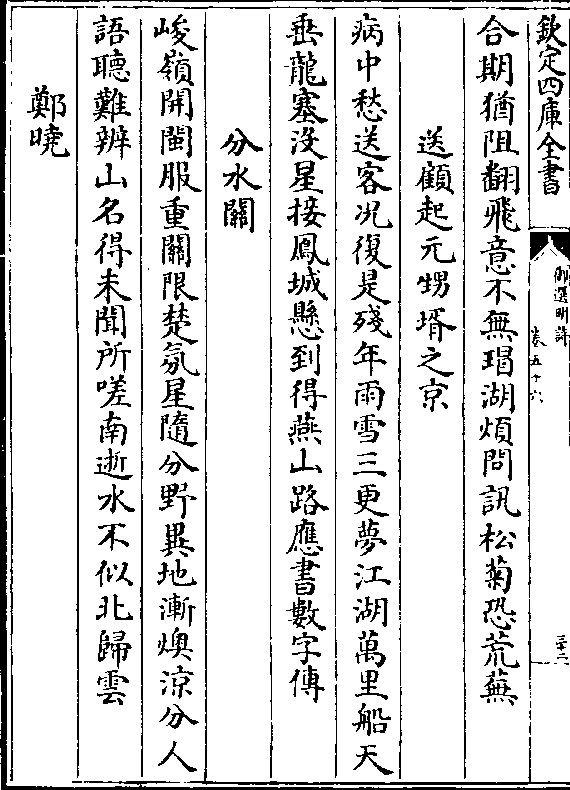 欽定四庫全書
御選明詩
卷五十六
三十二
合期猶阻翻飛意不無瑁湖煩問訊松菊恐荒蕪
送顧起元甥壻之京
病中愁送客况復是殘年雨雪三更夢江湖萬里船天
垂龍塞没星接鳳城懸到得燕山路應書數字傳
分水關
峻嶺開閩服重關限楚氛星隨分野異地漸燠涼分人
語聽難辨山名得未聞所嗟南逝水不似北歸雲
鄭曉